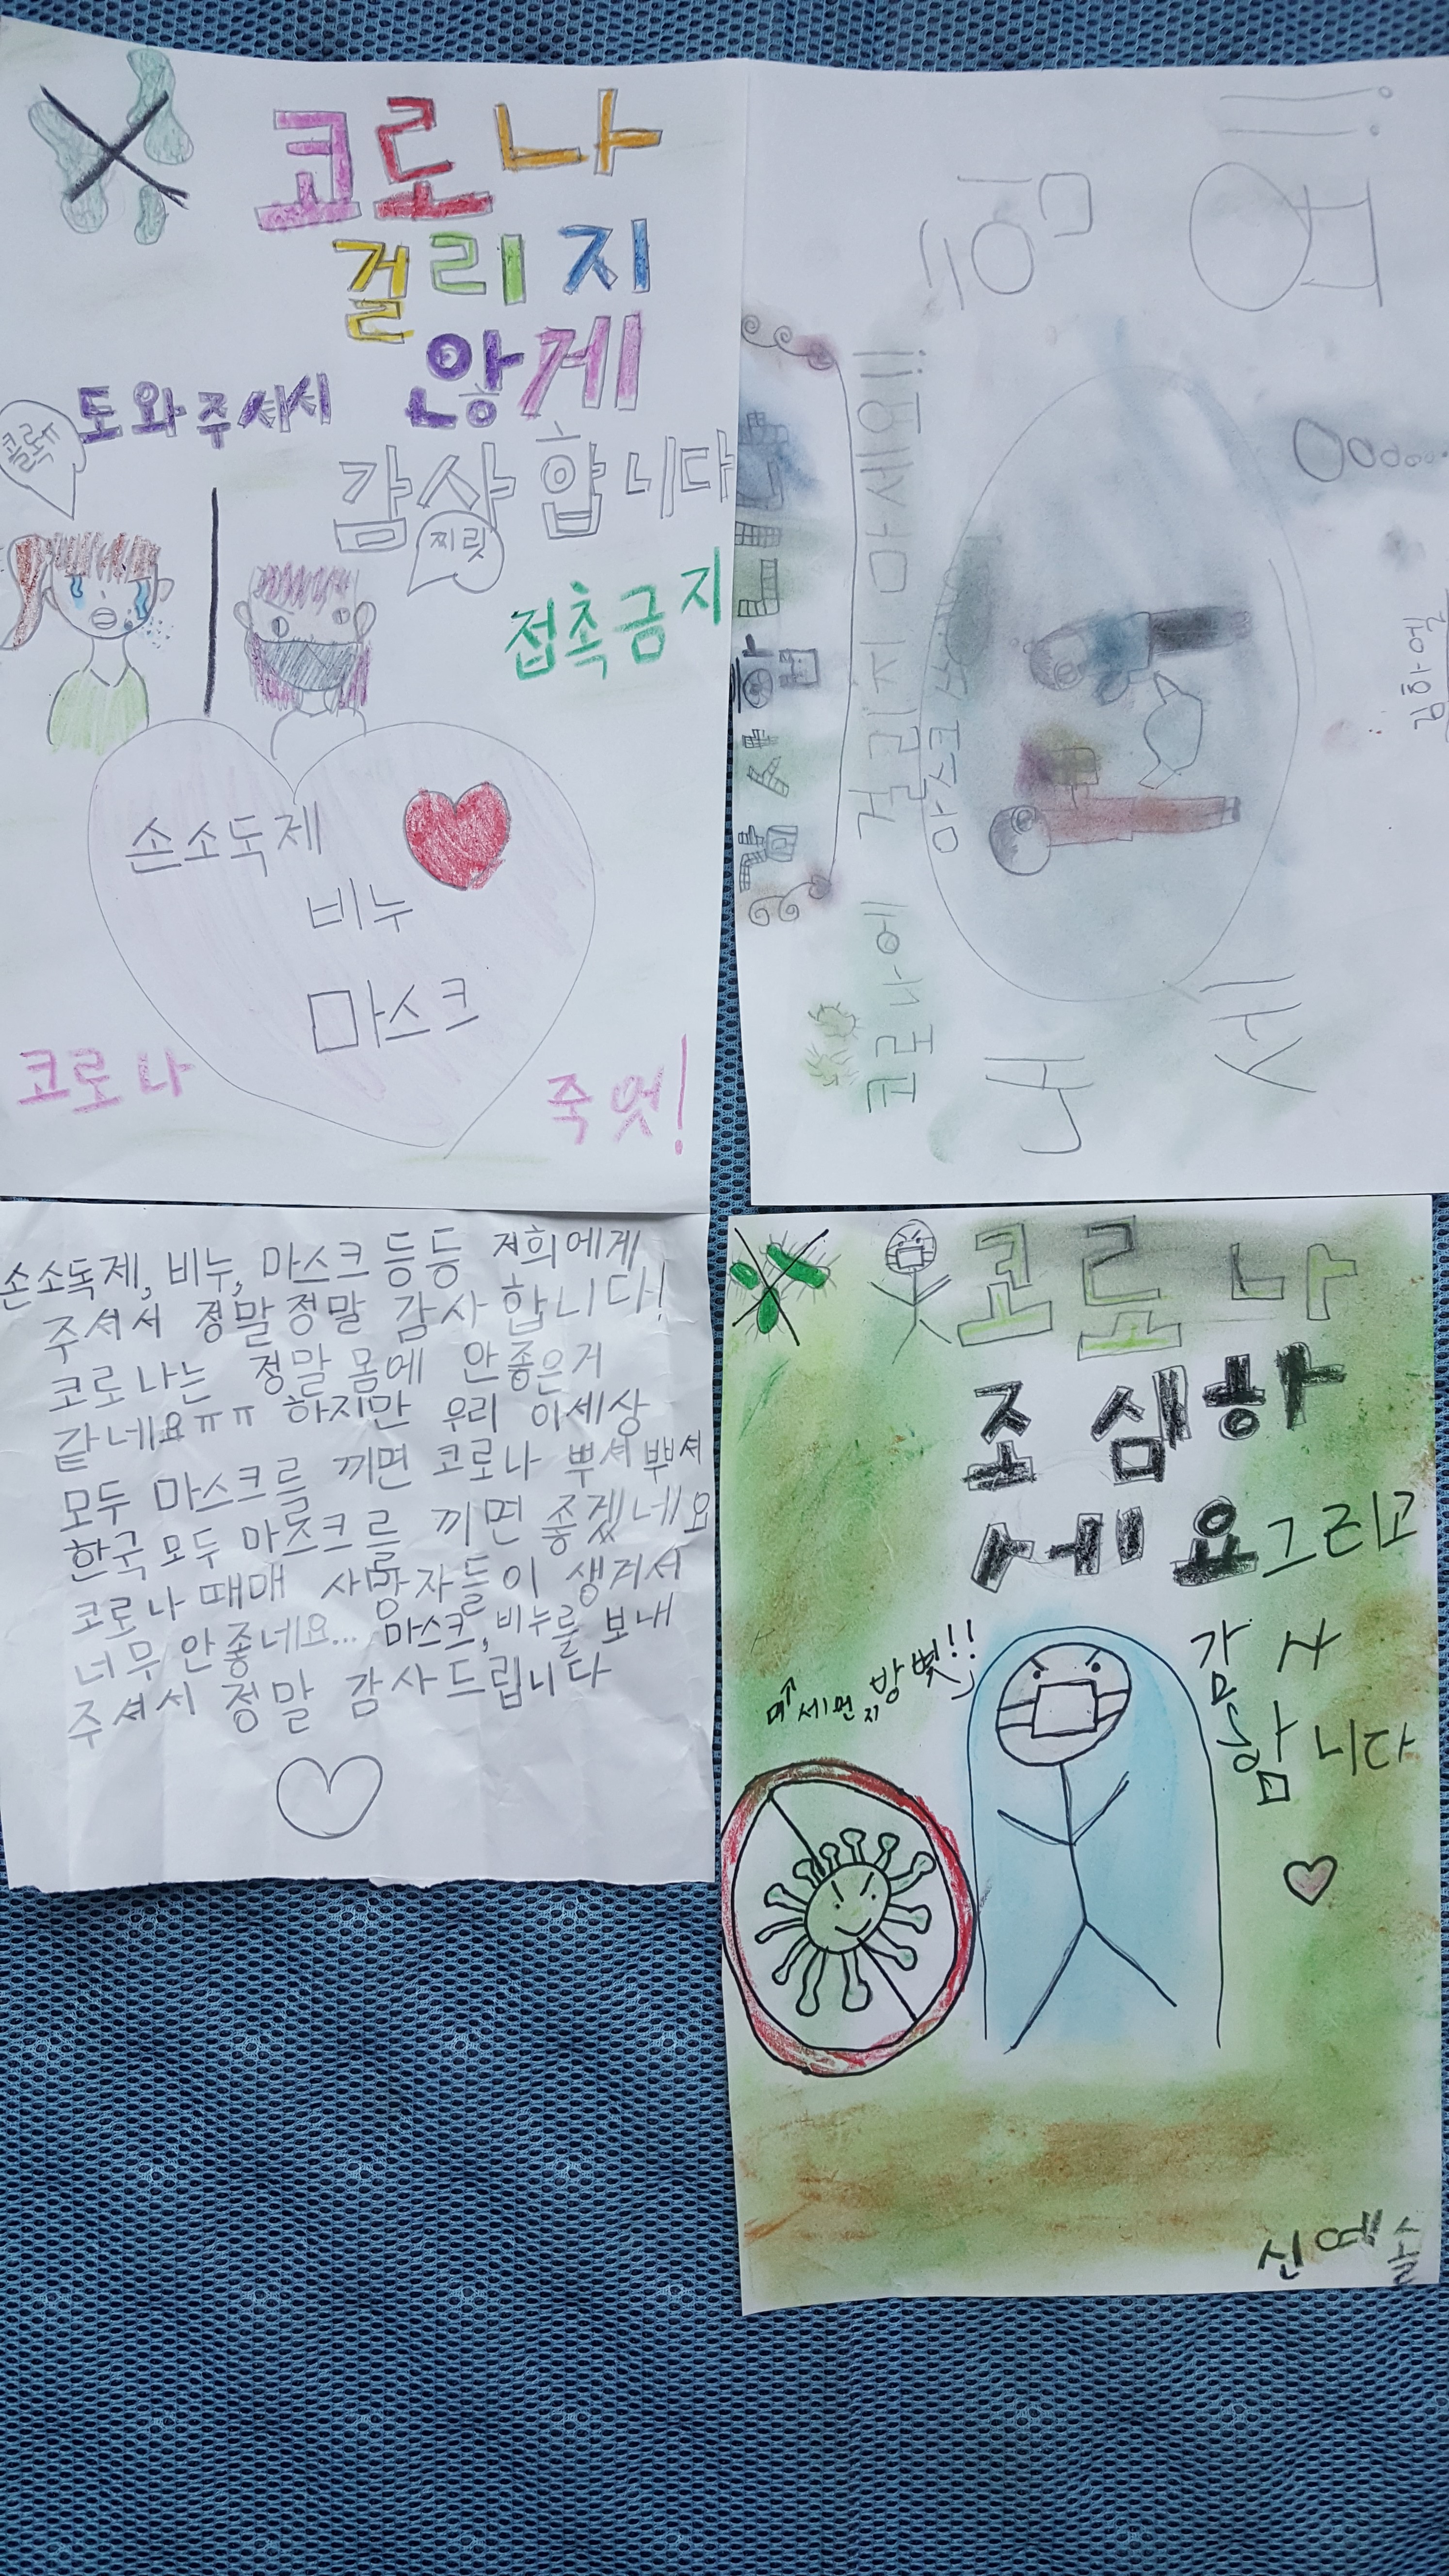 코로나
걸리지
않게
도와주셔서
감사합니다
콜록
찌릿
접촉금지
손소독제
비누
마스크
코로나 죽엇!
코로나에 걸리지 마세요!!
마스크
김하엘
손소독제, 비누, 마스크 등등 저희에게
주셔서 정말정말 감사합니다!
코로나는 정말 몸에 안좋은거
같네요ㅠㅠ 하지만 우리 이세상
모두 마스크를 끼면 코로나 뿌셔뿌셔
한국 모두 마스크를 끼면 좋겠네요
코로나 때매 사망자들이 생겨서
너무 안좋네요... 마스크, 비누를 보내
주셔서 정말 감사드립니다
코로나
조심하
세요 그리고
감사
합니다
미세먼지
신예솔